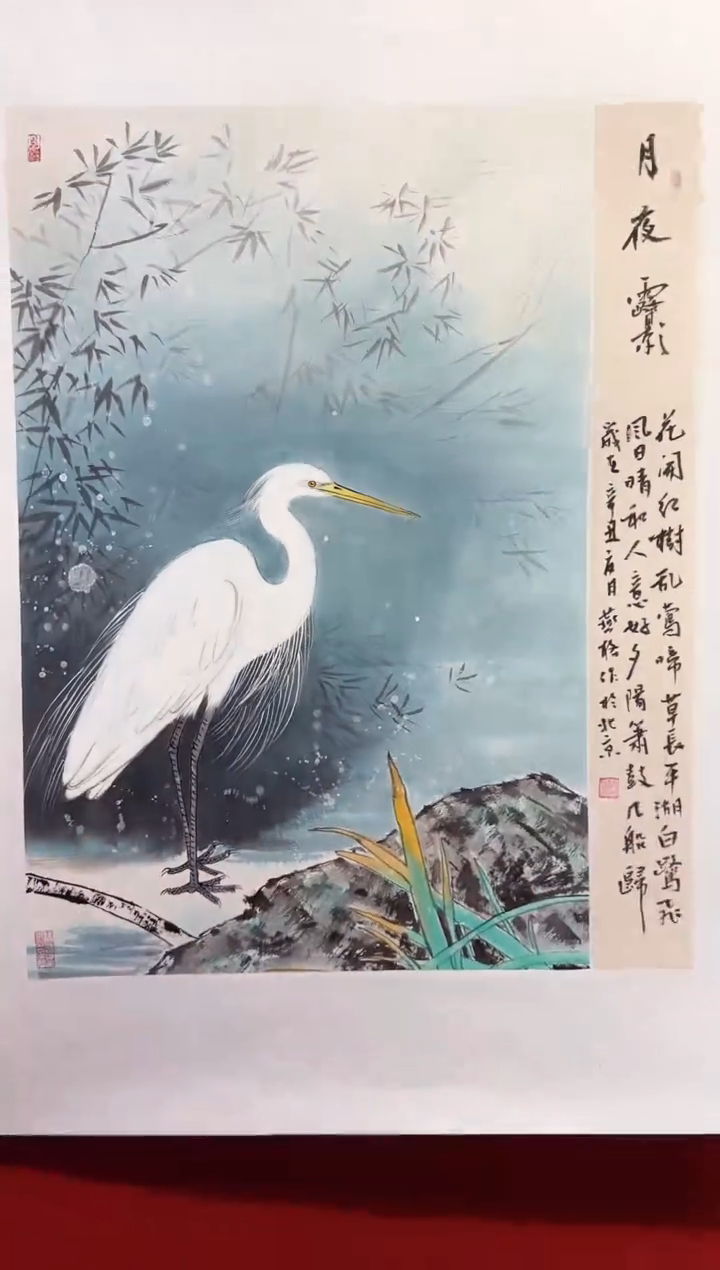 月夜影
花開紅樹乱鶯啼草長平湖白鷺飛
風日晴和人意好夕陽簫鼓几船歸
歲在辛丑月燕作於北京